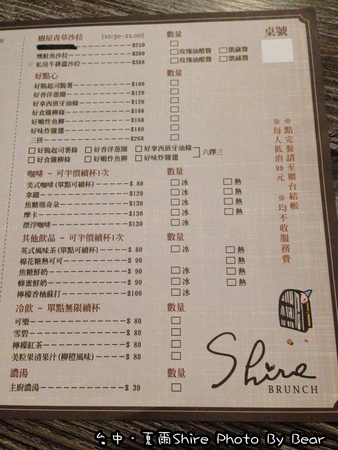 樹屋青草沙拉 (10:30-21:00) 數量 桌號
$250 □
燻鮭魚沙拉 $380 □ □玫瑰油醋醬 □凱薩醬
私房牛排溫沙拉 $380 □ □玫瑰油醋醬 □凱薩醬
好點心 數量
好脆起司脆薯 $100 □
好香洋蔥圈 $120 □
好拿西班牙油條 $120 □
好食雞柳條 $160 □
好嫩炸魚柳 $160 □
好味炸雞翅 $180 □
三拼 $268 □
□好脆起司薯條 □好香洋蔥圈 □好拿西班牙油條
□好食雞柳條 □好嫩炸魚柳 □好味炸雞翅
六擇三
咖啡 - 可半價續杯1次 數量
美式咖啡(單點可續杯) $ 80 □冰 □熱
拿鐵 $120 □冰 □熱
焦糖瑪奇朵 $130 □冰 □熱
摩卡 $130 □冰 □熱
漂浮咖啡 $130 □冰
其他飲品 - 可半價續杯1次 數量
英式風味茶(單點可續杯) $ 80 □熱
棉花糖熱可可 $ 90 □熱
焦糖鮮奶 $ 90 □冰 □熱
蜂蜜鮮奶 $ 90 □冰 □熱
檸檬香柚蘇打 $100 □冰
冷飲 - 單點無限續杯 數量
可樂 $ 80 □
雪碧 $ 80 □
檸檬紅茶 $ 80 □
美粒果清果汁(柳橙風味) $ 80 □
濃湯 數量
主廚濃湯 $ 39 □
※點完餐請至櫃台結帳
※每人低消99元 ※均不收服務費
Shire
BRUNCH
台中·夏爾Shire Photo By Bear